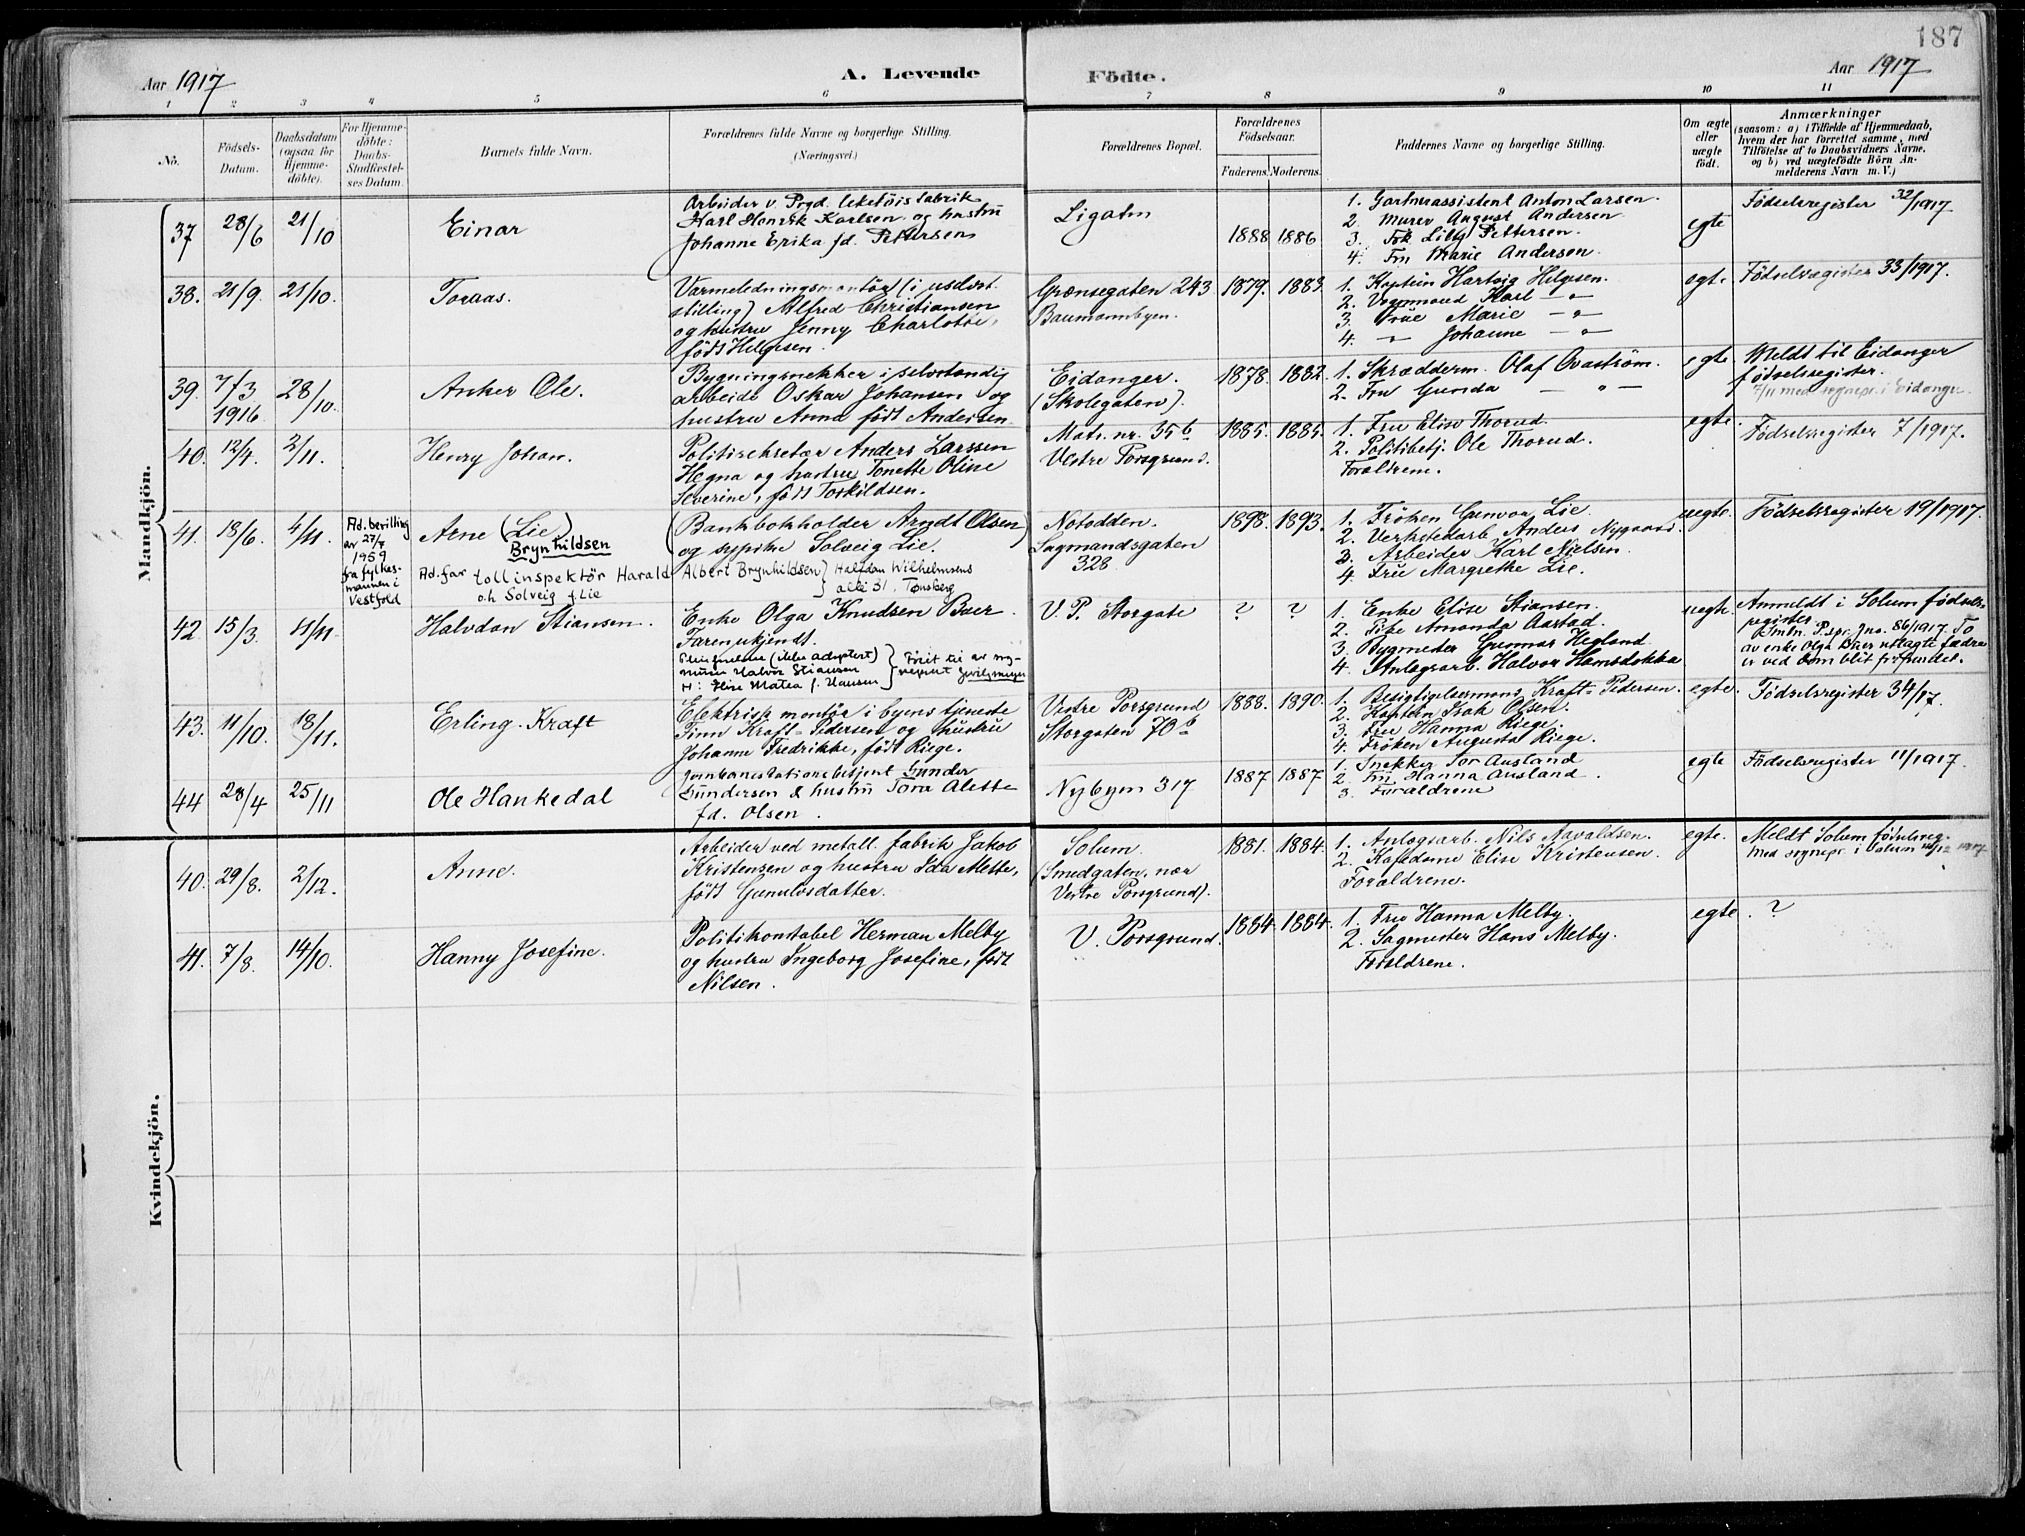 187
Aar 1917
A. Levende
Födte.
Aar 1917
1 2 3 4 5 6 7 8 9 10 11
No.
Födsels-
Datum.
Daabsdatum
(ogsaa for
Hjemme-
döbte).
For Hjemme-
döbte:
Daabs-
Stadfæstel-
ses Datum.
Barnets fulde Navn.
Forældrenes fulde Navne og borgerlige Stilling.
(Næringsvei.)
Forældrenes Bopæl.
Forældrenes
Födselsaar.
Faderens. Moderens.
Faddernes Navne og borgerlige Stilling.
Om ægte
eller
uægte
født.
Anmærkninger
(saasom: a) i Tilfælde af Hjemmedaab,
hvem der har forrettet samme, med
Tilføielse af to Daabsvidners Navne,
og b) ved uægtefödte Börn An-
melderens Navn m. V.)
Mandkjön.
37 28/6 21/10 Einar
Arbeider v. Prgd. leketöisfabrik
Karl Henrik Karlsen og hustru
Johanne Erika fd. Pettersen
Ligatn
1888 1886
1. Gartnerassistent Anton Larsen.
2. Murer August Andersen
3. Frk Lilly Pettersen.
4. Fru Marie Andersen.
egte
Födselsregister 32/1917
38. 21/9. 21/10. Toraas.
Varmeledningsmontör (i usdvst.
stilling) Alfred Christiansen
og hustru Jenny Charlotte,
født Helgesen.
Grænsegaten 243
Baumannbyen.
1879. 1883.
1. Kaptein Hartvig Helgesen.
2. Vognmand Karl — " —
3. Frue Marie — " —
4. " Johanne — " —
egte
Födselsregister 33/1917.
39. 7/3 1916 28/10. Anker Ole.
Bygningssnekker i selvstendig
arbeide Oskar Johansen og
hustru Anna født Andersen.
Eidanger.
(Skolegaten).
1878. 1882.
1. Skrædderm. Olaf Ovaström.
2. Fru Gunda — " —
egte
Meldt til Eidanger
fødselsregister.
40. 12/4. 2/11. Henry Johan.
Politisekretær Anders Larssen
Hegna og hustru Tonette Oline
Severine, født Torkildsen.
Matr. nr. 35b
Vestre Porsgrund.
1885. 1885.
1. Fru Elise Thorud.
2. Politibetj. Ole Thorud.
Forældrene.
egte.
Födselsregister 7/1917.
41. 18/6. 4/11. Ad. bevilling
av 27/7
1959
fra fylkes-
mannen i
Vestfold
Arne (Lie)
Brynhildsen
(Bankbokholder Arndt Olsen)
og sypike Solveig Lie.
Ad. far tollinspektör Harald Albert Brynhildsen } Halfdan Wilhelmsens
o.h Solveig f. Lie } alle 31. Tønsberg
Notodden.
Sagmandsgaten
328
1898. 1893.
1. Fröken Gunvor Lie.
2. Verkstedarb Anders Nygaard.
3. Arbeider Karl Nielsen.
4. Fru Margrethe Lie.
uegte.
Födselsregister 19/1917.
42 15/3. 4/11. Halvdan Stiansen.
Enke Olga Knudsen Baer.
Faren ukjendt.
Pleieforeldre (ikke adoptert)
murer Halvor Stiansen
H: Elise Matea f. Hansen
V. P. Storgate
? ?
1. Enke Elise Stiansen.
2. Pike Amanda Aastad.
3. Bygmester Gunnar Hegland.
4. Anlegsarb. Halvor Hamsdokka
uegte.
Anmeldt i Solum fødsels-
register
av enke Olga Baer utlagte fædre
er ved dom blit frifundet.
43. 11/10. 18/11. Erling Kraft
Elektrisk montör i byens tjeneste
Finn Kraft-Pedersen og hustru
Johanne Fredrikke, født Riege.
Vestre Porsgrund
Storgaten 70b
1888. 1890.
1. Besigtigelsesmand Kraft-Pedersen.
2. Kaptein Isak Olsen.
3. Fru Hanna Riege.
4. Fröken Augusta Riege.
egte.
Födselsregister 34/17.
44 28/4 25/11 Ole Hankedal
Jernbanestationsbetjent Gunder
Gundersen & hustru Tora Alette
fd. Olsen.
Nybyen 317
1887 1887
1. Snekker Tor Ausland
2. Fru Hanna Ausland.
3. Forældrene
egte
Födselsregister 11/1917.
Kvindekjön.
40. 29/8. 2/12. Anne.
Arbeider ved metall fabrik Jakob
Kristensen og hustru Ida Mette,
født Gunulvsdatter.
Solum.
(Smedgaten, nær
Vestre Porsgrund).
1881. 1884.
1. Anlegsarb. Nils Aavaldsen.
2. Kapeldame Elise Kristensen.
Forældrene.
egte.
Meldt Solum fødselsreg.
41. 7/8. 14/10. Hanny Josefine.
Politikonstabel Herman Melby
og hustru Ingeborg Josefine, født
Nilsen.
V. Porsgrund.
1884. 1884.
1. Fru Hanna Melby.
2. Sagmester Hans Melby.
Forældrene.
egte. ?